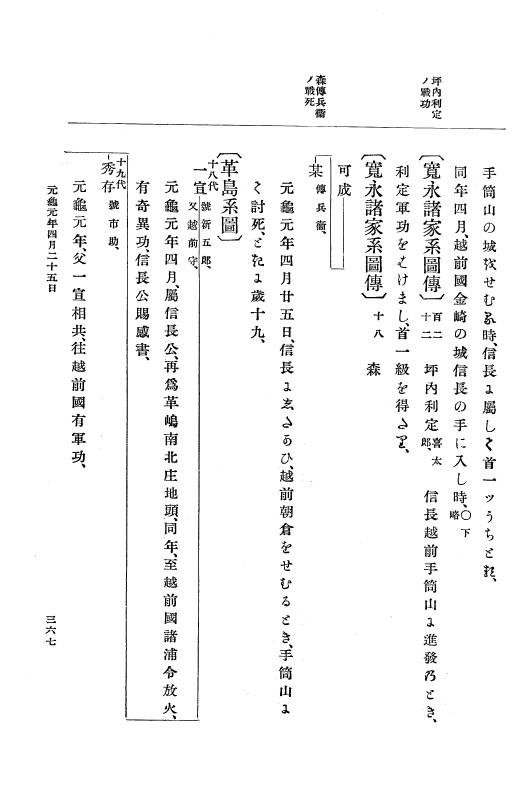 坪内利定
ノ戰功
森傳兵衞
ノ戰死
手筒山の城攻せむる時、信長に屬して首一ッうちとる、
同年四月、越前國金崎の城信長の手に入し時、〇下略
〔寬永諸家系圖傳〕百二十二 坪内利定喜太郎、 信長越前手筒山に進發乃とき、
利定軍功をはけまし、首一級を得たり、
〔寬永諸家系圖傳〕十八 森
可成
某傳兵衞、
元龜元年四月廿五日、信長にゑたかひ、越前朝倉をせむるとき、手筒山に
て討死、としは歲十九、
〔革島系圖〕
十八代
一宣號新五郎、又越前守、
元龜元年四月、屬信長公、再爲革嶋南北庄地頭、同年、至越前國諸浦令放火、
有奇異功、信長公賜感書、
十九代
秀存號市助、
元龜元年、父一宣相共、往越前國有軍功、
元龜元年四月二十五日
三六七